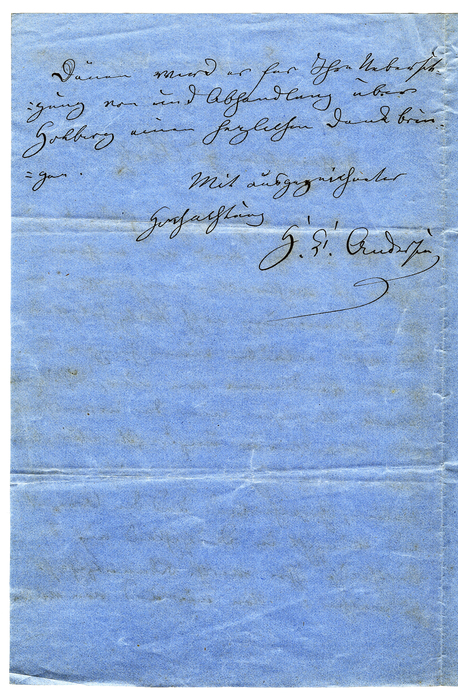 Dänen wird es für Ihre Uebersät-
=zung von und Abhandlung über
Holberg einen herzlichen Dank brin-
=gen.
Mit ausgezeichneter
Hochachtung
H. C. Andersen